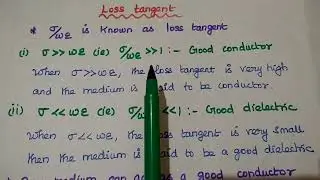 Loss tangent
* σ/ωε is known as loss tangent
(i) σ >> ωε (ie) σ/ωε >> 1 :- Good conductor
When σ >> ωε, the loss tangent is very high
and the medium is said to be conductor.
(ii) σ << ωε (ie) σ/ωε << 1 :- Good dielectric
When σ << ωε, the loss tangent is very small
then the medium is said to be a good dielectric
medium can a good conductor